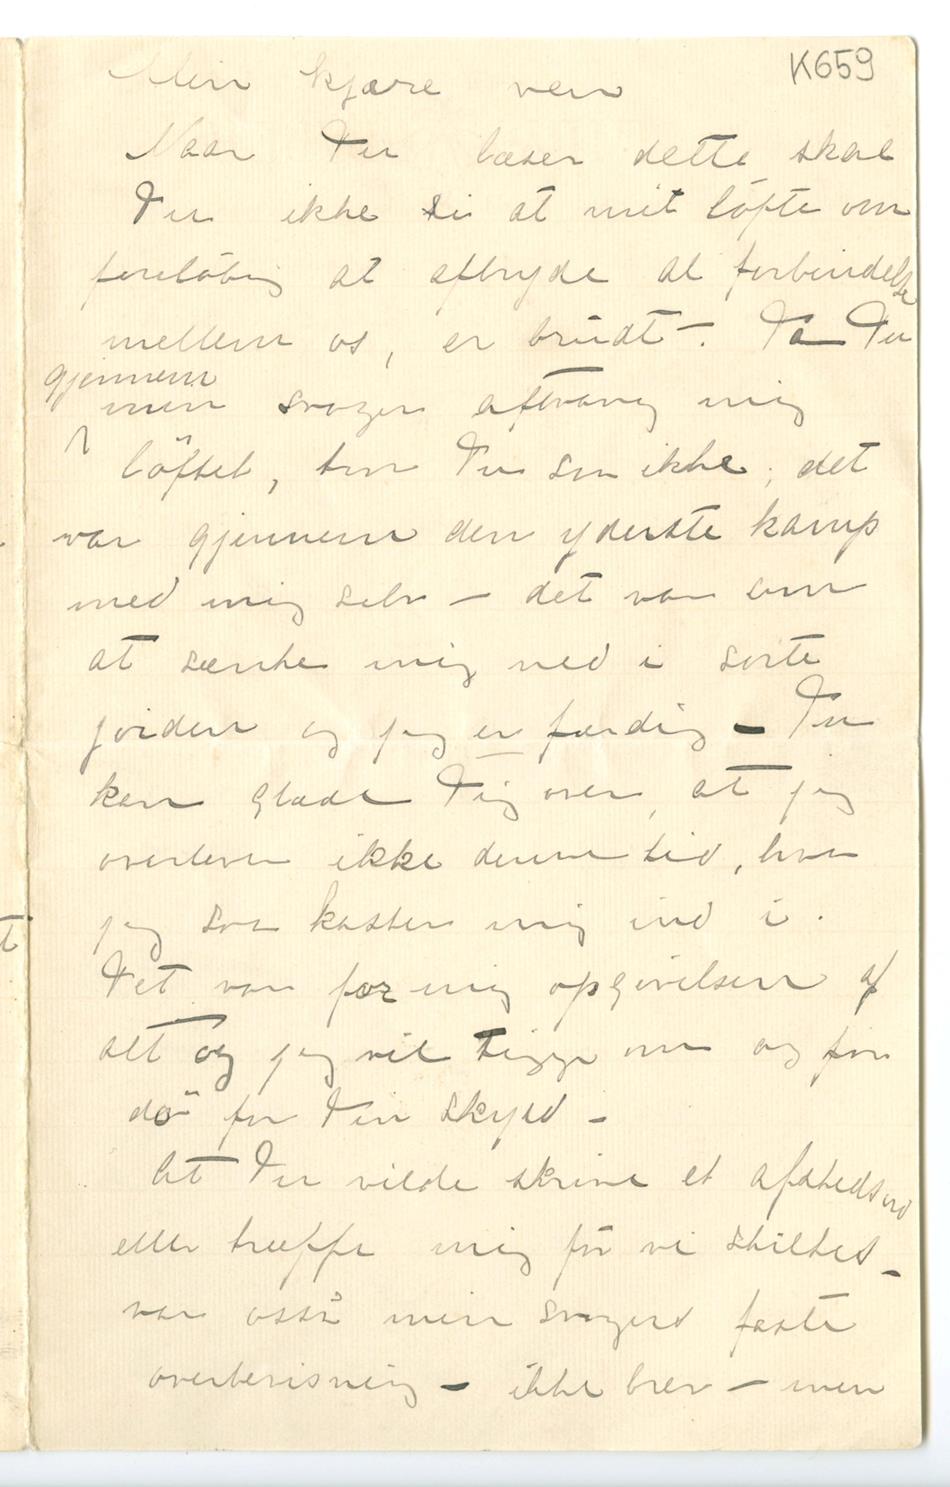 K659
Min kjære ven
Naar Du læser dette skal
Du ikke si at mit löfte om
foreløbig at afbryde al forbindelse
mellem os, er brudt –. Da Du
gjennem
min svoger aftvang mig
löftet, tror Du som ikke, det
var gjennem den yderste kamp
med mig selv – det var som
at sænke mig ned i sorte
jorden og jeg er færdig – Du
kan glæde Dig over, at jeg
overlever ikke denne tid, hvor
jeg saa kaster mig ind i.
Det var for mig opgivelsen af
alt og jeg vil tigge om og for
dö for Din skyld –
At Du vilde skrive et afskedsord
eller træffe mig för vi skiltes –
var osså min svogers faste
overbevisning – ikke brev – men